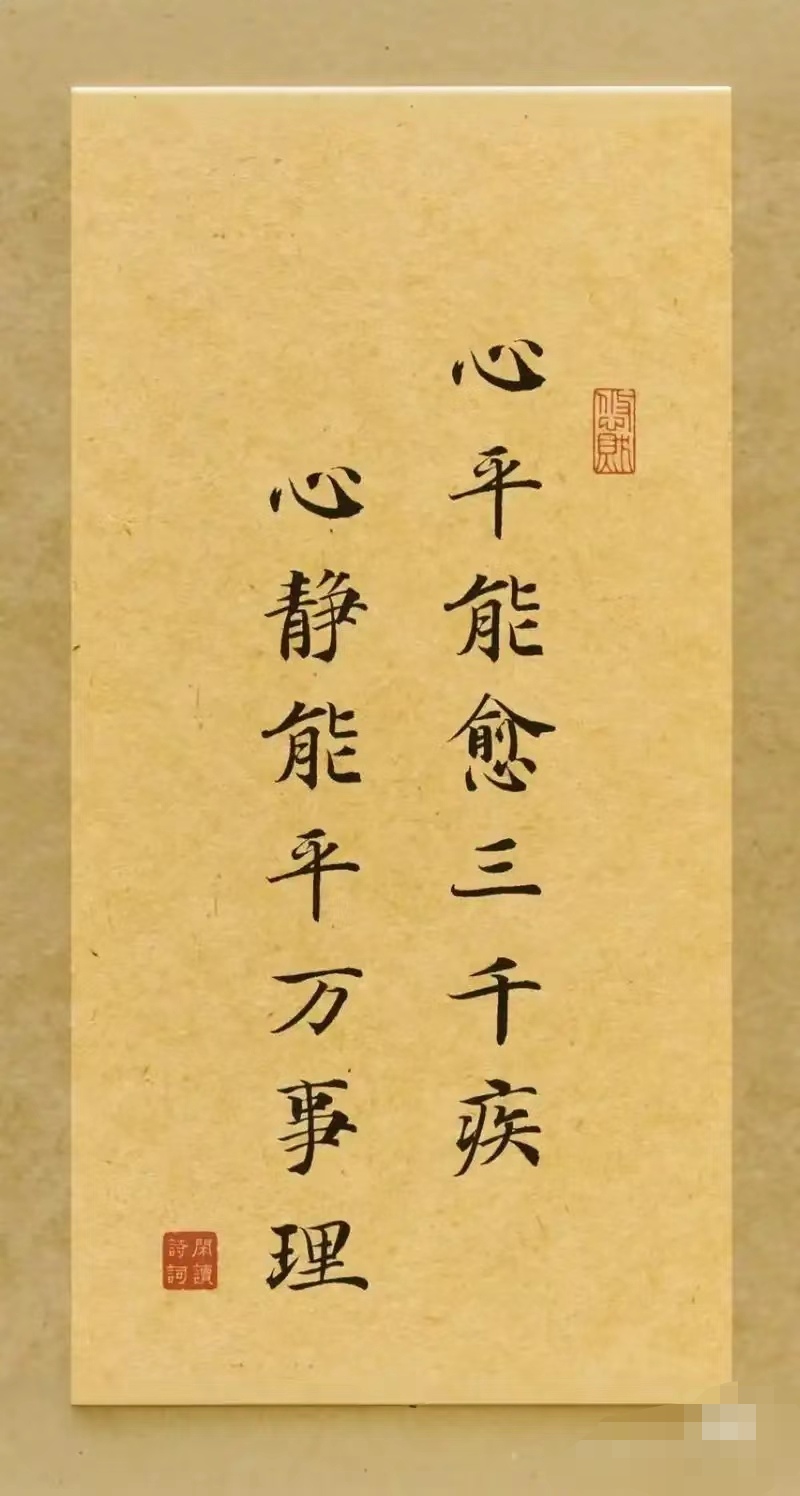 心平能愈三千疾
心静能平万事理
閑讀
詩詞